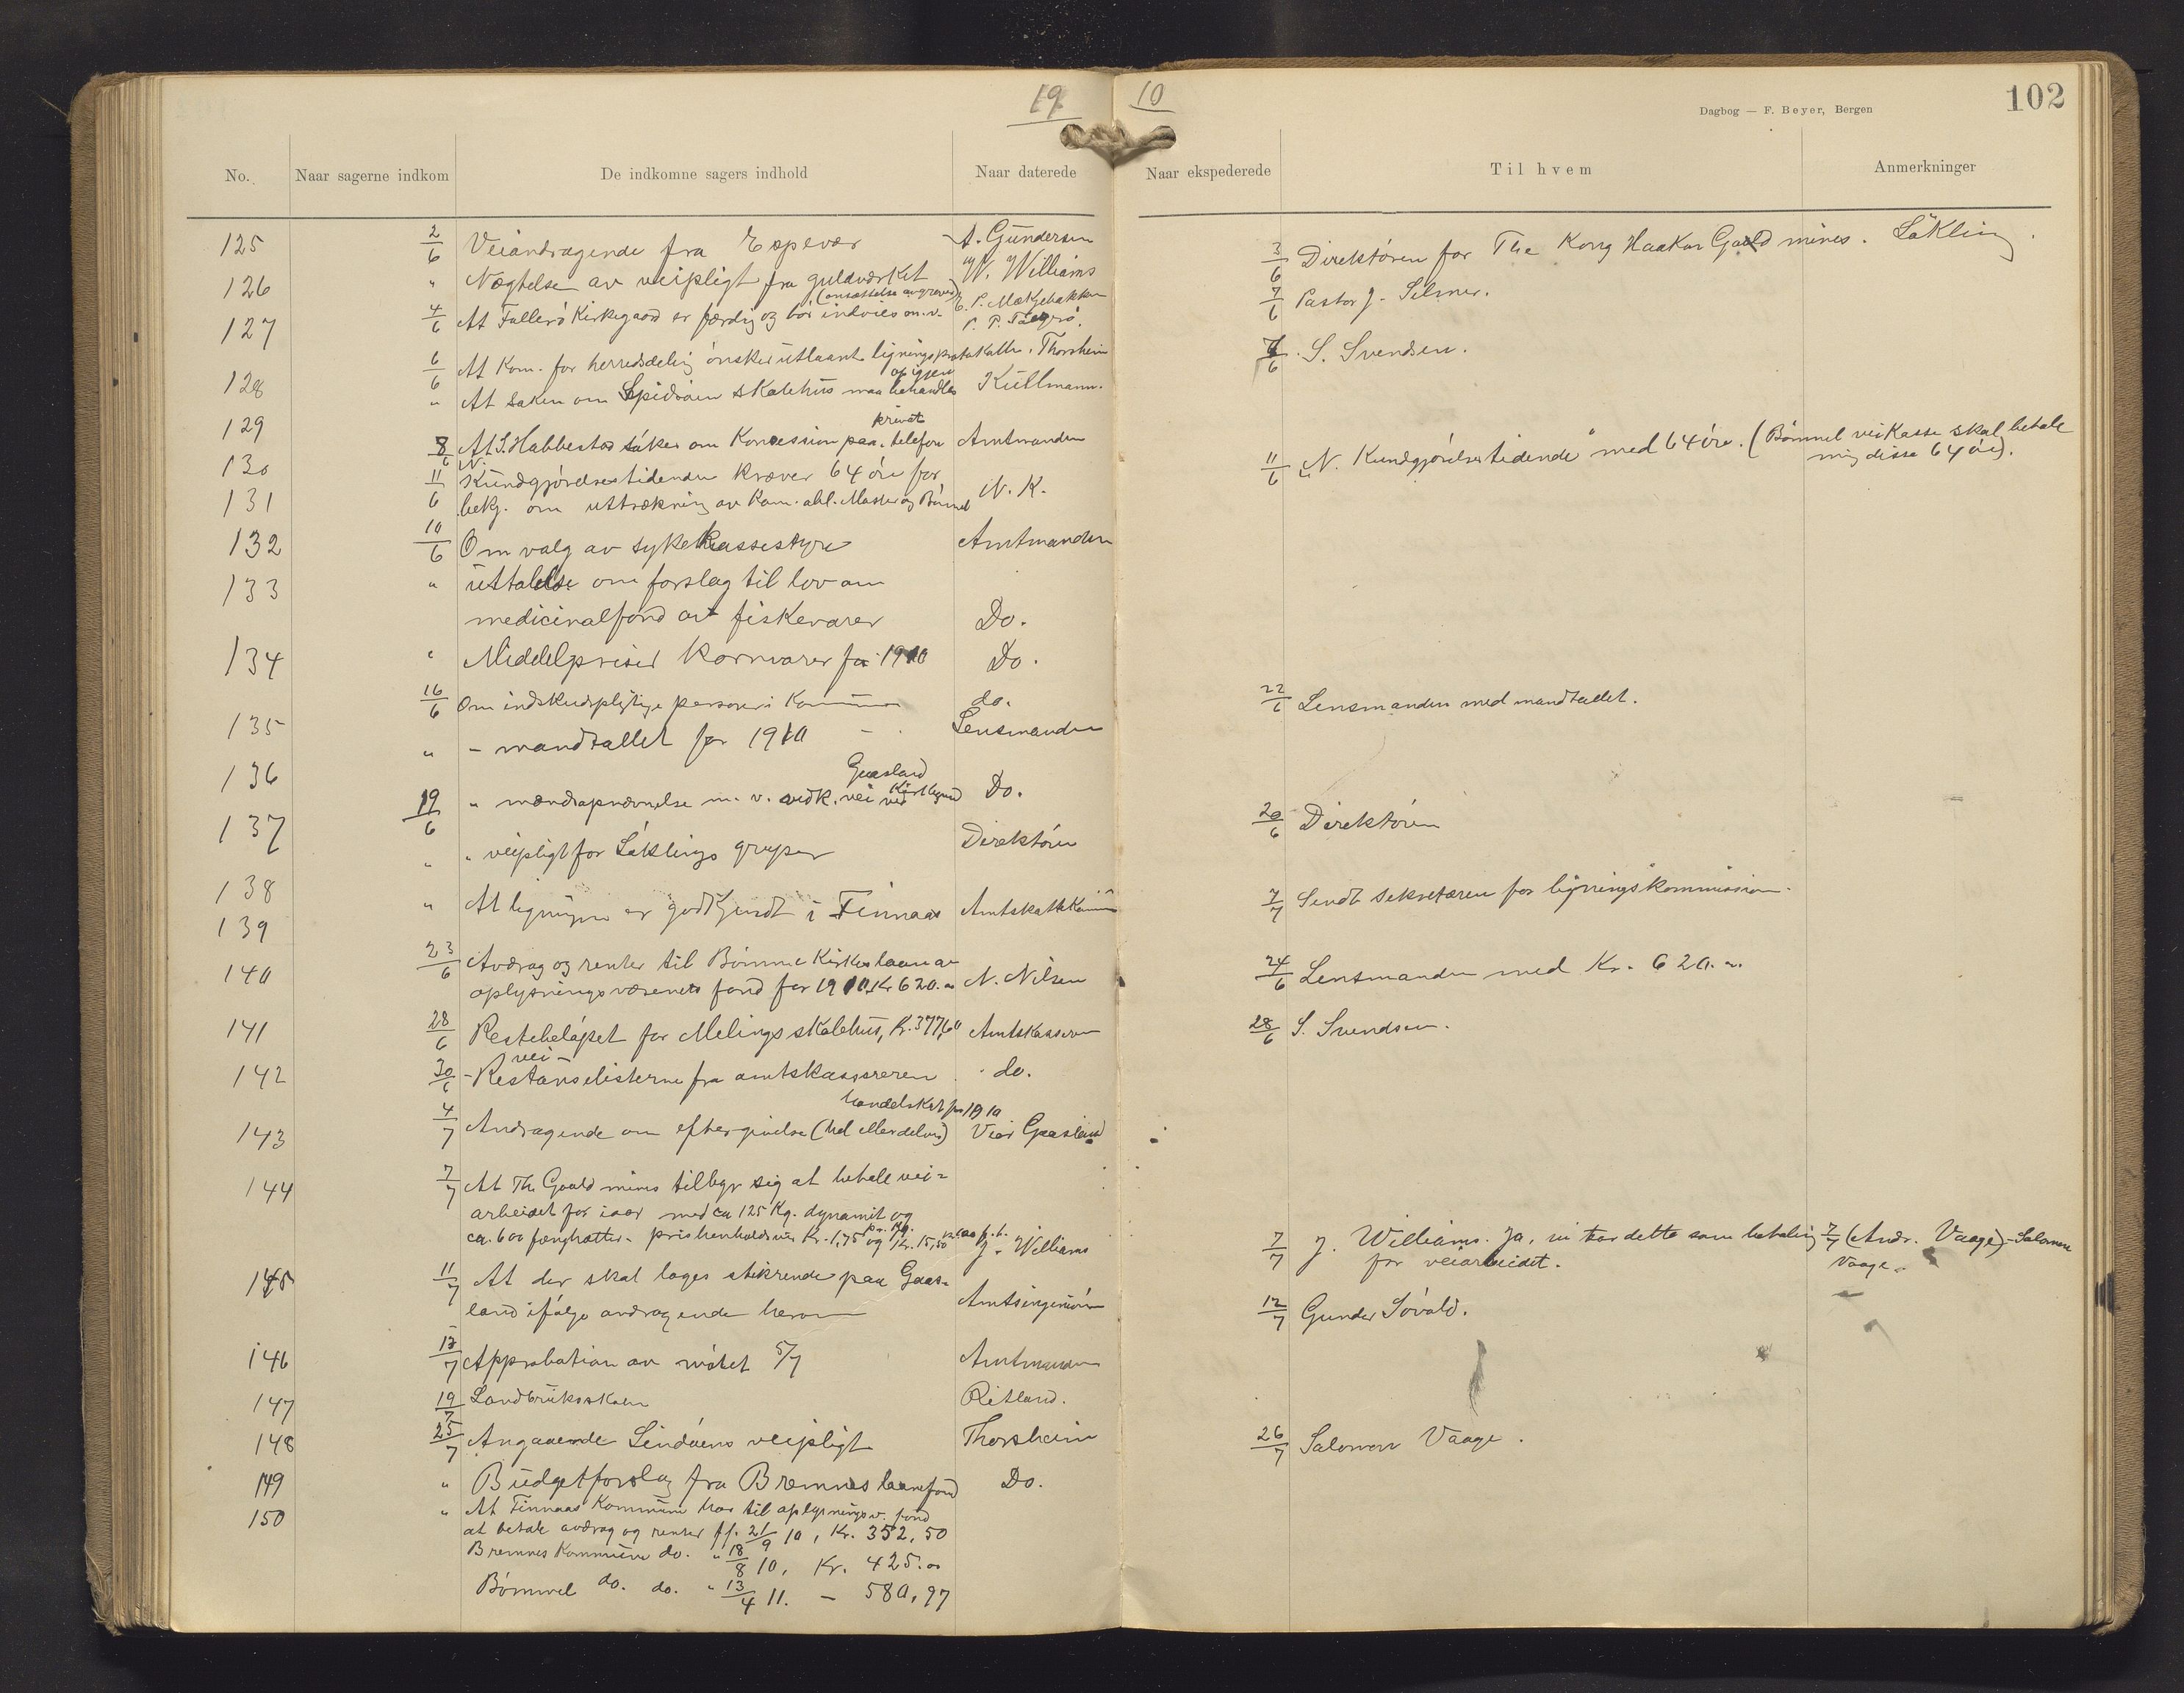 19 10
Dagbog — F. Beyer, Bergen
102
No. Naar sagerne indkom De indkomne sagers indhold Naar daterede Naar ekspederede Til hvem Anmerkninger
125 2/6 Veiandragende fra Espevær A. Gundersen 3/6 Direktören for The Kong Haakon Goald mines. Lökling.
126 " Nægtelse av veipligt fra guldværket W. Williams 7/6 Pastor J. Selmer.
(ansættelse avgraver)
127 4/6 At Folleró Kirkegaard er færdig og bör indvies m.v.
6/6 At Kom. for herredsdeling önsker utlaant ligningsprotokoller. Thorsheim 7/6 S. Svendsen.
op igjen
128 " At saken om Spidsöen skolehus maa behandles Kullmann.
privat
129 8/6 At S. Habbestad söker om Koncession paa telefon Amtmanden
130 11/6 N. Kundgjörelsestidende kræver 64 öre for N. K. 11/6 "N. Kundgjörelsestidende" med 64 öre. (Bömmel veikasse skal betale
131 bekj. om uttrækning av Kom. obl. Moster og Bömmel mig disse 64 öre).
132 10/6 Om valg av sykekassestyre Amtmanden
133 " uttalelse om forslag til lov om
medicinalfond av fiskevarer Do.
134 " Middelpriser kornvarer for 1910 Do.
135 16/6 Om indskudspligtige personer i Kommunen do. 22/6 Lensmanden med mandtallet.
" - mandtallet for 1910 - Lensmanden
136 Gaasland
19/6 " mændsopnævnelse m. v. vedk. vei ved Do.
137 " " veipligt for Löklings gruper Direktören 20/6 Direktören
138 " At ligningen er godkjendt i Finnaas 7/7 Sendt sekretæren for ligningskommission.
139
140 23/6 Avdrag og renter til Bömmel Kirkes laan av 24/6 Lensmanden med Kr. 620.
oplysningsvæsenets fond for 1910, Kr 620. N. Nilsen
141 28/6 Restebelöpet for Melings skolehus, Kr. 377,60 Amtskasseren 28/6 S. Svendsen.
vei-
142 30/6 - Restanselisterne fra amtskassereren do.
handelskat for 1910
143 4/7 Andragende om eftergivelse (hel eller delvis) Gaasland
144 7/7 At The Goald mines tilbyr sig at betale vei-
arbeidet for iaar med ca 125 Kg. dynamit og
pr. Kg.
ca. 600 fænghætter - prishenholdsvis Kr. 1,75 og Kr. 15,50 J. Williams 7/7 J. Williams. Ja, vi tar dette som betaling 7/7 (Andr. Vaage) - Salomon
for veiarbeidet. Vaage.
145 11/7 At der skal lages stikrende paa Gaas-
land ifölge andragende herom Amtsingeniören 12/7 Gunder Sövold.
146 12/7 Approbation av mötet 5/7 Amtmanden
147 19/7 Landbruksskolen Ritland.
148 25/7 Angaaende Lindöens veipligt Thorsheim 26/7 Salomon Vaage.
149 " Budgetforslag fra Bremnes laanefond Do.
150 " At Finnaas Kommune har til oplysningsv. fond
at betale avdrag og renter pr. 21/9 10, Kr. 352,50
Bremnes Kommune do. " 18/8 10, Kr. 425.00
Bömmel do. do. " 13/4 11. - 580,97